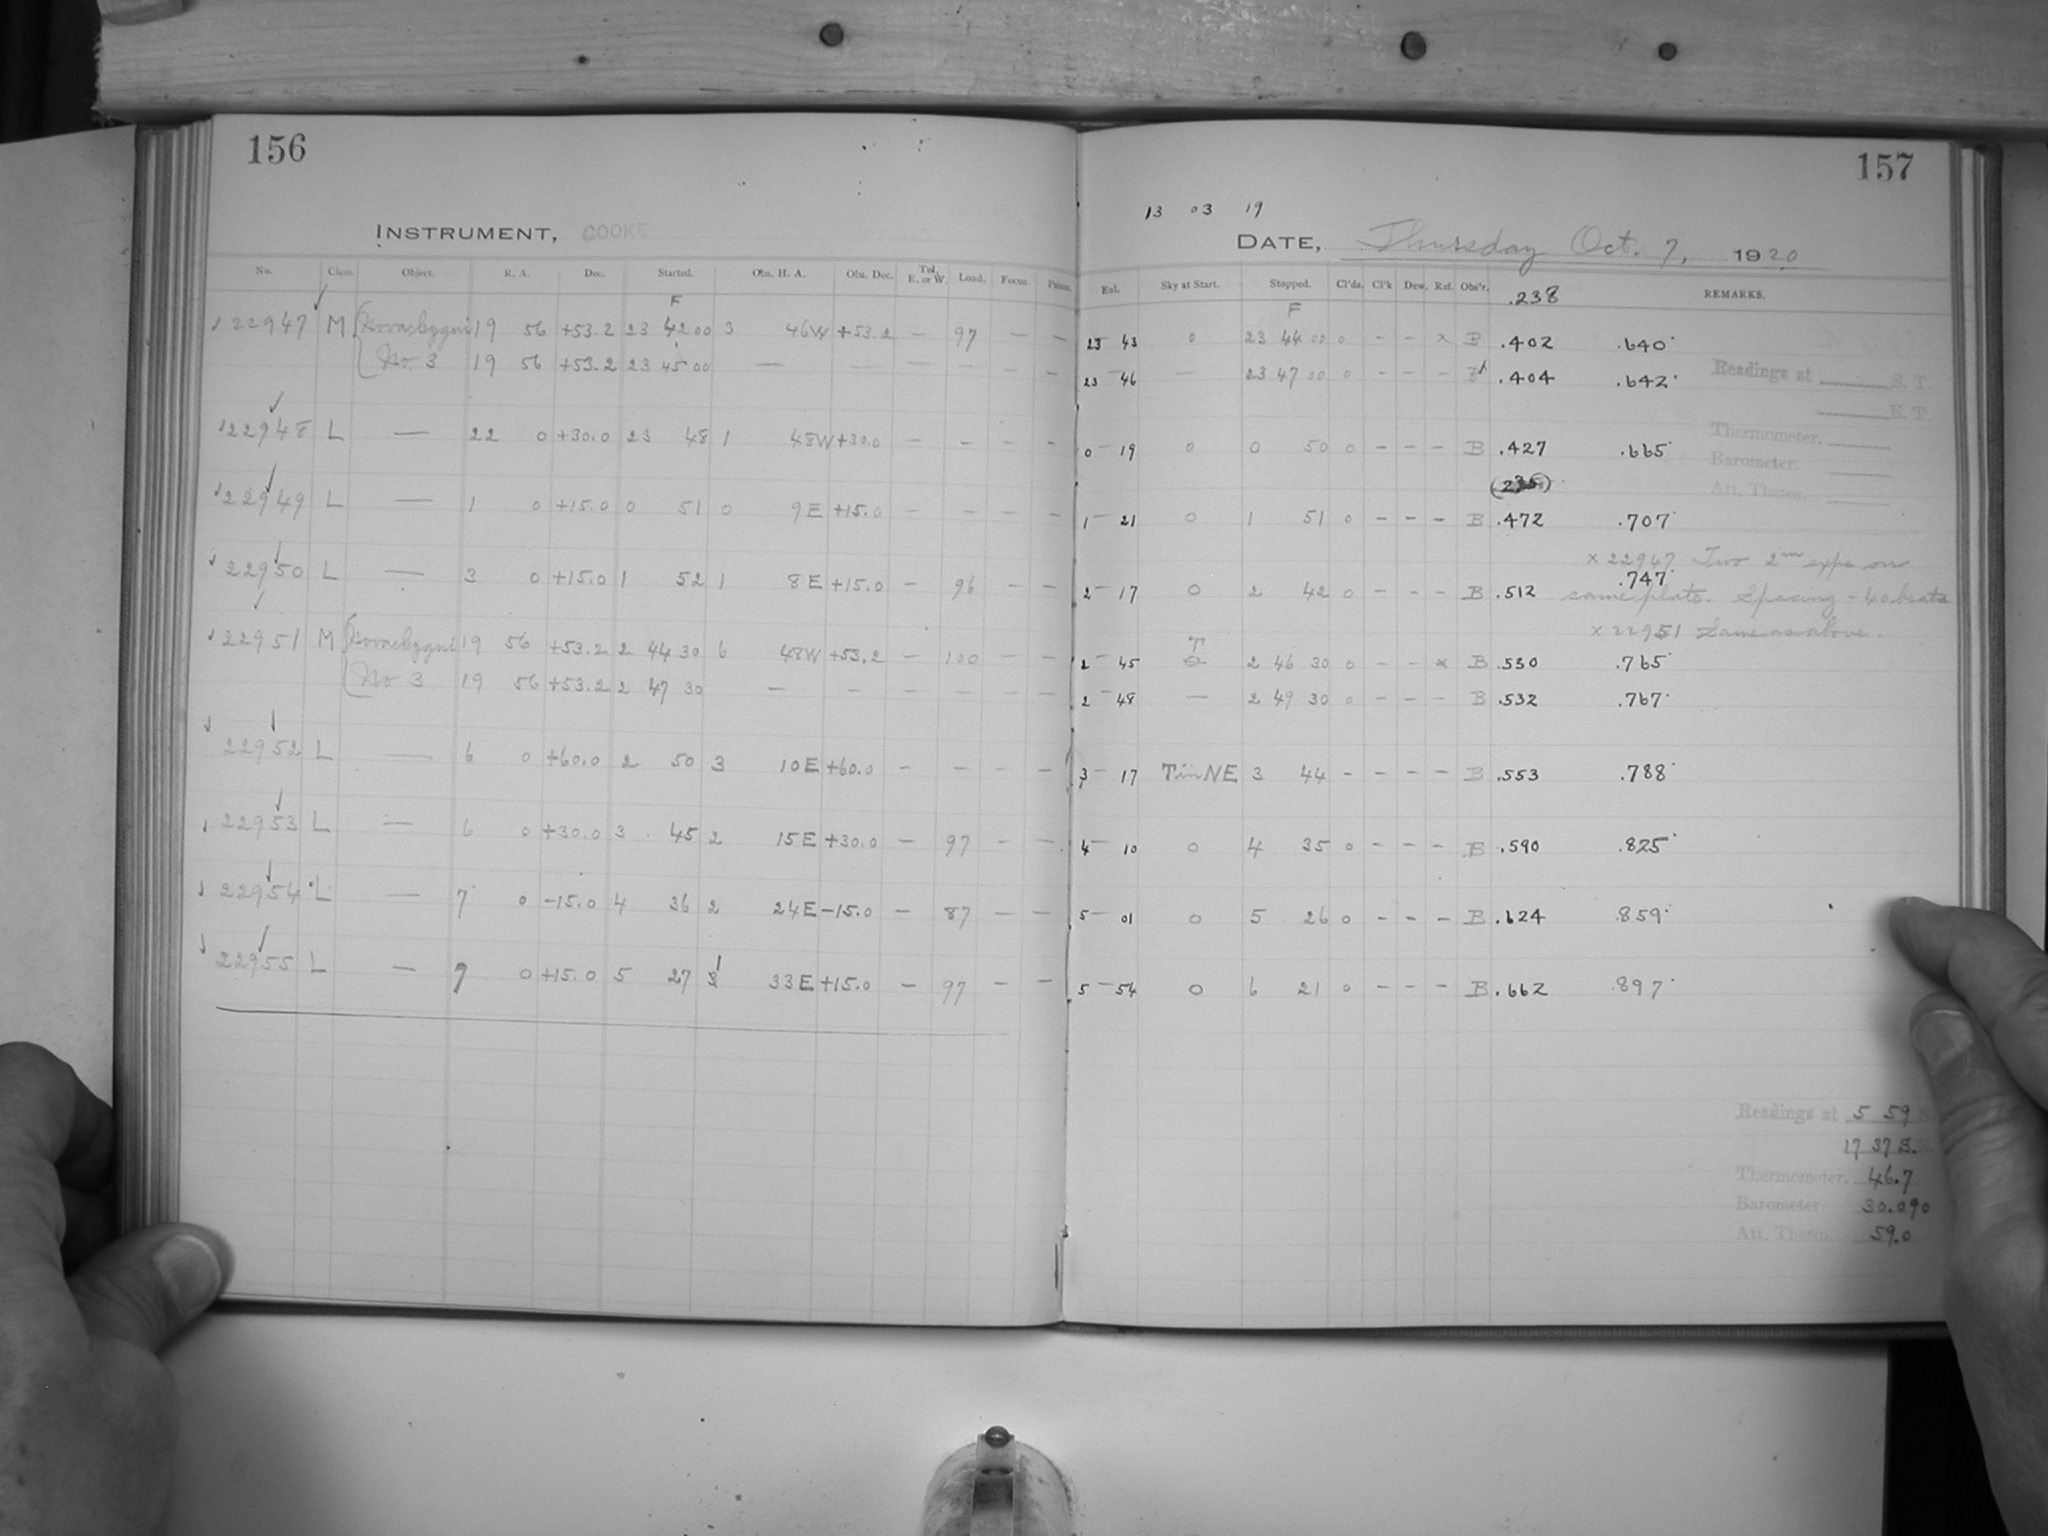 156
INSTRUMENT, COOKE
No. Class. Object. R. A. Dec. Started. Obs. H. A. Obs. Dec. Tel. E. or W. Load. Focus. Prisms.
F
22947 M 19 56 +53.2 23 42 00 3 46W +53.2 — 97 — —
No 3 19 56 +53.2 23 45 00 — — — — — —
22948 L — 22 0 +30.0 23 48 1 48W +30.0 — — — —
22949 L — 1 0 +15.0 0 51 0 9E +15.0 — — — —
22950 L — 3 0 +15.0 1 52 1 8E +15.0 — 96 — —
22951 M 19 56 +53.2 2 44 30 6 48W +53.2 — 100 — —
No 3 19 56 +53.2 2 47 30 — — — — — —
22952 L — 6 0 +60.0 2 50 3 10E +60.0 — — — —
22953 L — 6 0 +30.0 3 45 2 15E +30.0 — 97 — —
22954 L — 7 0 -15.0 4 36 2 24E -15.0 — 87 — —
22955 L — 9 0 +15.0 5 27 1 33E +15.0 — 97 — —
157
13 03 19
DATE, Thursday Oct. 7, 1920
Sky at Start. Stopped. Cl'ds. Cl'k Dew. Ref. Obs'r. .238 REMARKS.
F
23 43 0 23 44 00 0 — — x B .402 .640
23 46 — 23 47 00 0 — — — B .404 .642
Readings at S. T.
E. T.
Thermometer.
0 19 0 0 50 0 — — — B .427 .665
Barometer.
(235)
Att. Therm.
1 21 0 1 51 0 — — — B .472 .707
x 22947 Two 2m exps on
2 17 0 2 42 0 — — — B .512 .747
same plate. Spacing - 40 beats
x 22951 Same as above.
T
2 45 0 2 46 30 0 — — x B .530 .765
2 48 — 2 49 30 0 — — — B .532 .767
3 17 T in NE 3 44 — — — — B .553 .788
4 10 0 4 35 0 — — — B .590 .825
5 01 0 5 26 0 — — — B .624 .859
5 54 0 6 21 0 — — — B .662 .897
Readings at 5 59 S.
17 37 S.
Thermometer. 46.7
Barometer. 30.090
Att. Therm. 59.0